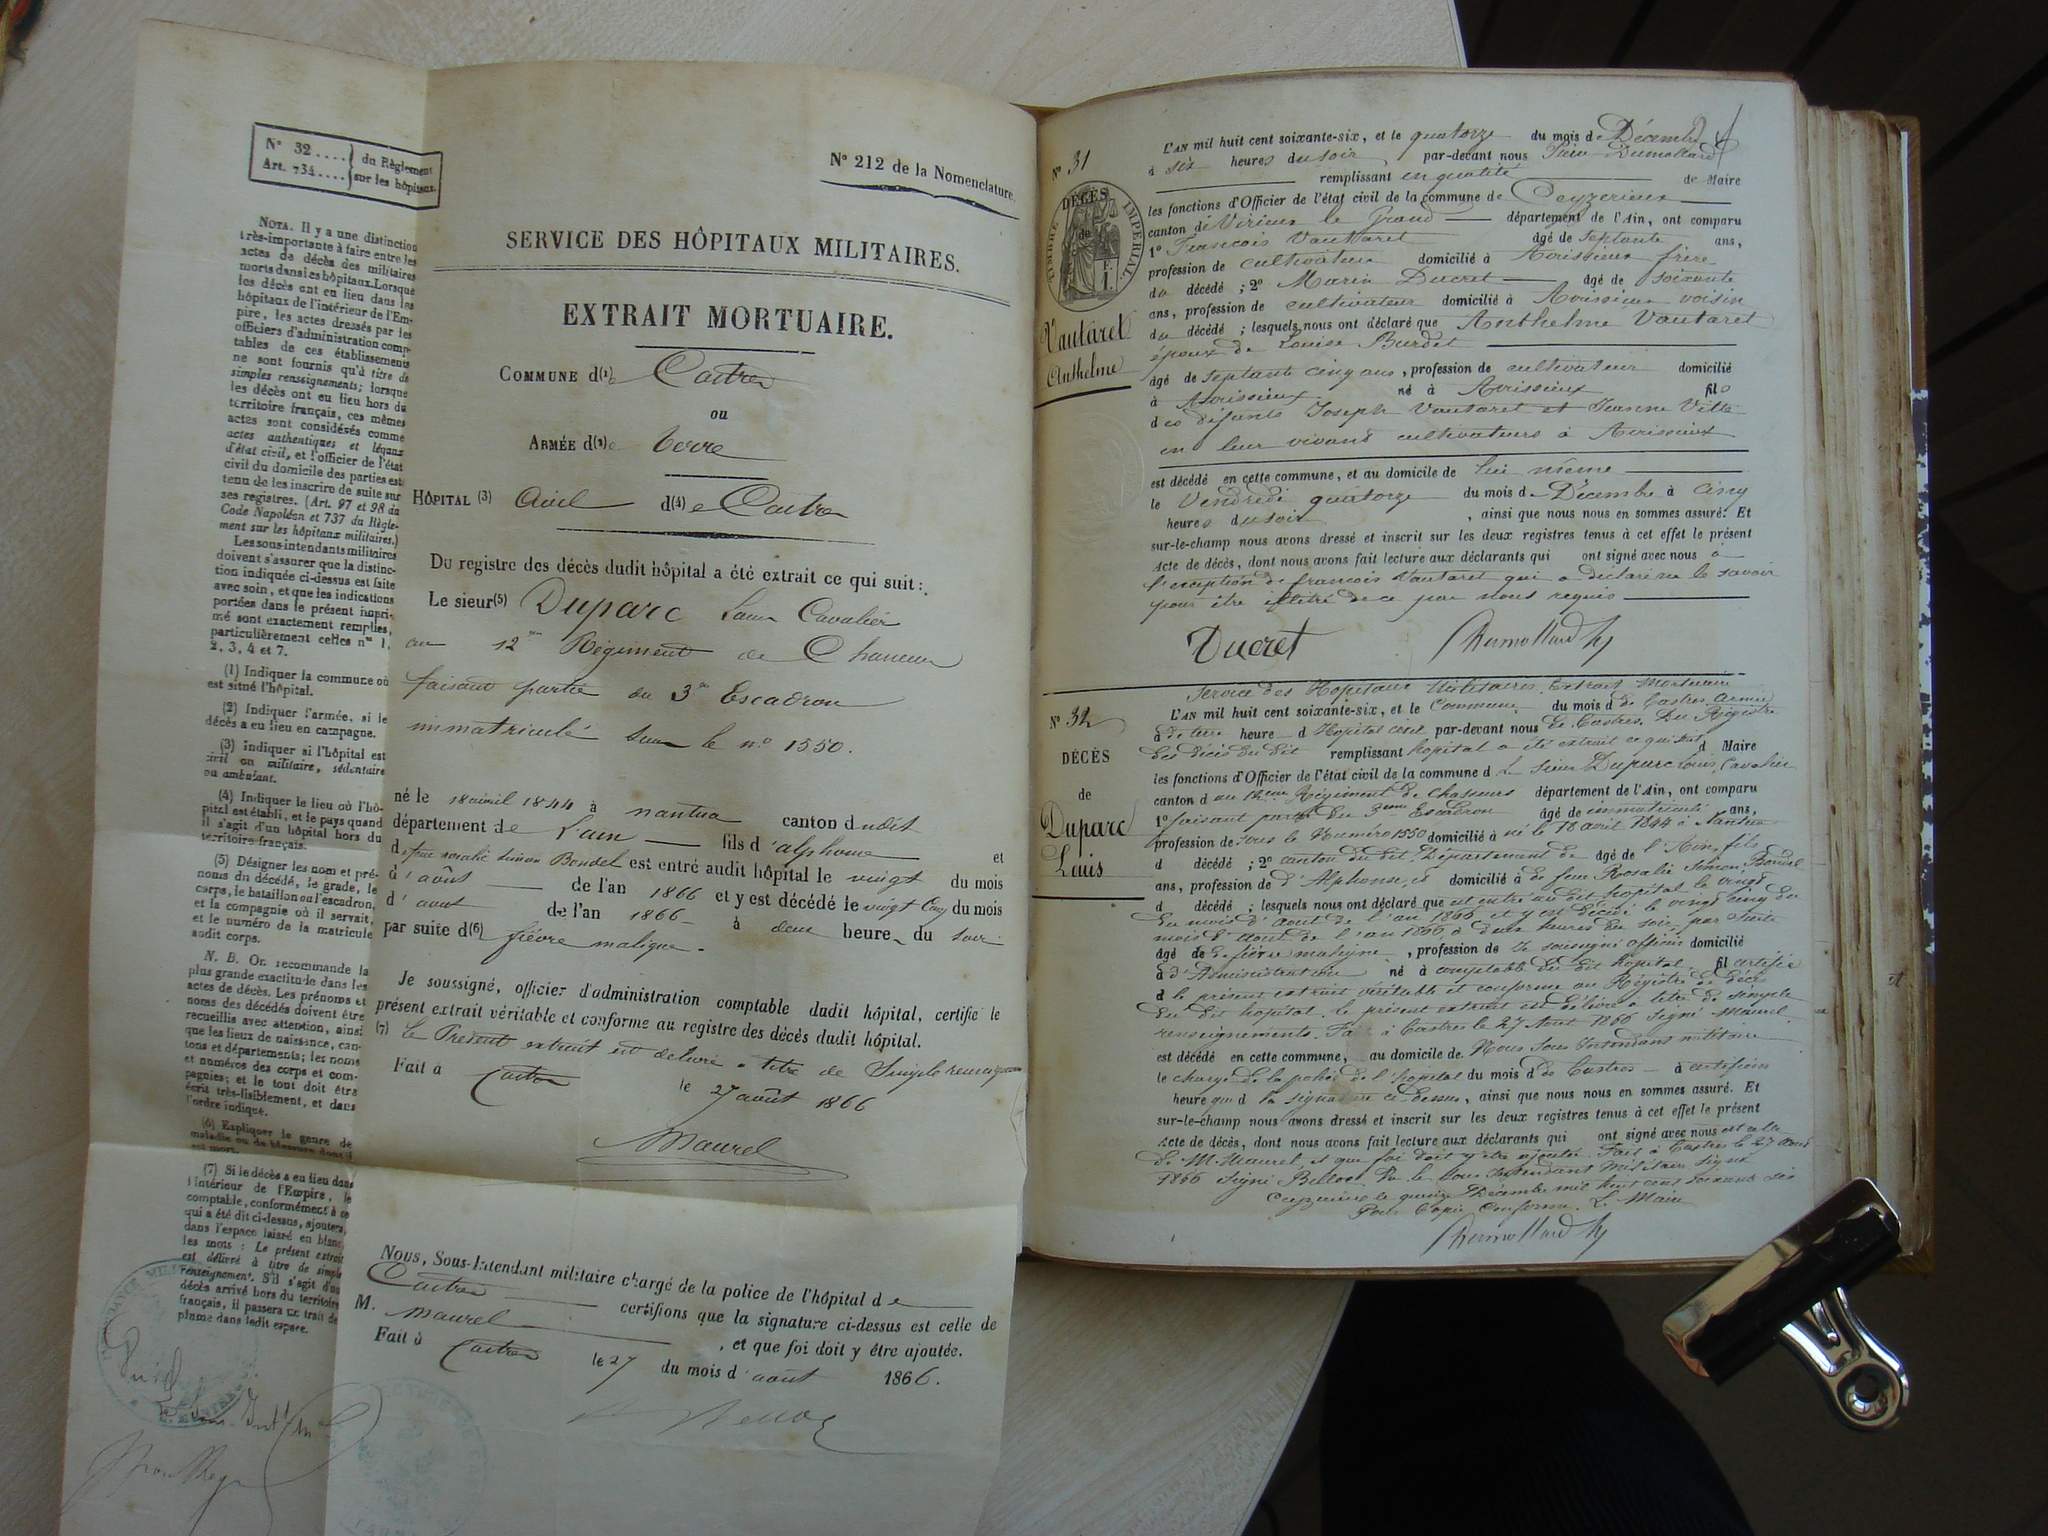 N° 32 .... } du Règlement
Art. 734 .... } sur les hôpitaux.
N° 212 de la Nomenclature.
NOTA. Il y a une distinction
très-importante à faire entre les
actes de décès des militaires
morts dans les hôpitaux. Lorsque
les décès ont eu lieu dans les
hôpitaux de l'intérieur de l'Em-
pire, les actes dressés par les
officiers d'administration comp-
tables de ces établissements
ne sont fournis qu'à titre de
simples renseignements; lorsque
les décès ont eu lieu hors du
territoire français, ces mêmes
actes sont considérés comme
actes authentiques et légaux
d'état civil, et l'officier de l'état
civil du domicile des parties est
tenu de les inscrire de suite sur
ses registres. (Art. 97 et 98 du
Code Napoléon et 737 du Règle-
ment sur les hôpitaux militaires.)
Les sous-intendants militaires
doivent s'assurer que la distinc-
tion indiquée ci-dessus est faite
avec soin, et que les indications
portées dans le présent impri-
mé sont exactement remplies,
particulièrement celles nos 1,
2, 3, 4 et 7.
(1) Indiquer la commune où
est situé l'hôpital.
(2) Indiquer l'armée, si le
décès a eu lieu en campagne.
(3) Indiquer si l'hôpital est
civil ou militaire, sédentaire
ou ambulant.
(4) Indiquer le lieu où l'hô-
pital est établi, et le pays quand
il s'agit d'un hôpital hors du
territoire français.
(5) Désigner les nom et pré-
noms du décédé, le grade, le
corps, le bataillon ou l'escadron,
et la compagnie où il servait,
et le numéro de la matricule
audit corps.
N. B. On recommande la
plus grande exactitude dans les
actes de décès. Les prénoms et
noms des décédés doivent être
recueillis avec attention, ainsi
que les lieux de naissance, can-
tons et départements; les noms
et numéros des corps et com-
pagnies; et le tout doit être
écrit très-lisiblement, et dans
l'ordre indiqué.
(6) Expliquer le genre de
maladie ou de blessure dont il
est mort.
(7) Si le décès a eu lieu dans
l'intérieur de l'Empire, le
comptable, conformément à ce
qui a été dit ci-dessus, ajoutera,
dans l'espace laissé en blanc,
les mots : Le présent extrait
est délivré à titre de simple
renseignement. S'il s'agit d'un
décès arrivé hors du territoire
français, il passera un trait de
plume dans ledit espace.
SERVICE DES HÔPITAUX MILITAIRES.
EXTRAIT MORTUAIRE.
COMMUNE d(1)e Castres
ou
ARMÉE d(2)e terre
HÔPITAL (3) Civil d(4)e Castres
Du registre des décès dudit hôpital a été extrait ce qui suit :
Le sieur(5) Duparc Louis Cavalier
au 12me Régiment de Chasseurs
faisant partie du 3me Escadron
immatriculé sous le n° 1550.
né le 18 avril 1844 à nantua canton dudit
département de L'ain fils d'alphonse et
de feue rosalie Simon Bondet est entré audit hôpital le vingt du mois
d'août de l'an 1866 et y est décédé le vingt cinq du mois
d'aout de l'an 1866 à deux heures du soir
par suite d(6)e fièvre maligne.
Je soussigné, officier d'administration comptable dudit hôpital, certifie le
présent extrait véritable et conforme au registre des décès dudit hôpital.
(7) le Présent extrait est délivré à titre de Simple renseignement
Fait à Castres le 27 août 1866
Maurel
Nous, Sous-Intendant militaire chargé de la police de l'hôpital de
Castres certifions que la signature ci-dessus est celle de
M. Maurel, et que foi doit y être ajoutée.
Fait à Castres le 27 du mois d'aout 1866.
N° 31
TIMBRE IMPÉRIAL
1 F.
DÉCÈS
de
Vautaret
Anthelme
L'AN mil huit cent soixante-six, et le quatorze du mois de Décembre
à six heures du soir, par-devant nous Pierre Dumollard
remplissant en qualité de Maire
les fonctions d'Officier de l'état civil de la commune de Ceyzerieu
canton de Virieu le Grand département de l'Ain, ont comparu
1° François Vautaret âgé de septante ans,
profession de cultivateur domicilié à Avrissieux frère
du décédé ; 2° Marin Ducret âgé de soixante
ans, profession de cultivateur domicilié à Avrissieux voisin
du décédé ; lesquels nous ont déclaré que Anthelme Vautaret
époux de Louise Burdet
âgé de septante cinq ans, profession de cultivateur domicilié
à Avrissieux né à Avrissieux fils
des défunts Joseph Vautaret et Jeanne Vitte
en leur vivant cultivateurs à Avrissieux
est décédé en cette commune, et au domicile de lui même
le Vendredi quatorze du mois de Décembre à cinq
heures du soir, ainsi que nous nous en sommes assuré. Et
sur-le-champ nous avons dressé et inscrit sur les deux registres tenus à cet effet le présent
acte de décès, dont nous avons fait lecture aux déclarants qui ont signé avec nous à
l'exception de francois Vautaret qui a déclaré ne le savoir
pour être illettré de ce par nous requis
Ducret Dumollard
N° 32
DÉCÈS
de
Duparc
Louis
Service des Hopitaux Militaires. Extrait Mortuaire
L'AN mil huit cent soixante-six, et le Commune du mois d de Castres Armée
à de terre heure d Hopital civil par-devant nous de Castres. Du Régistre
des décès du dit remplissant hopital a été extrait ce qui suit d Maire
les fonctions d'Officier de l'état civil de la commune d Le sieur Duparc Louis, Cavalier
canton d au 12eme Régiment de Chasseurs département de l'Ain, ont comparu
1° faisant partie du 3eme Escadron âgé de immatriculé ans,
profession de sous le Numéro 1550 domicilié à né le 18 avril 1844 à Nantua
d décédé ; 2° canton du dit Département de âgé de l'Ain, fils
ans, profession de d'Alphonse, et domicilié à de feue Rosalie Simon Bondet
d décédé ; lesquels nous ont déclaré que est entré au dit hopital le vingt
du mois d'Aout de l'an 1866 et y est décédé le vingt cinq du
mois d'Aout de l'an 1866 à deux heures du soir, par suite
âgé de de fièvre maligne, profession de Je soussigné officier domicilié
à d'Administration né à comptable du dit hopital fil certifie
d le présent extrait véritable et conforme au Régistre de décès
du dit hopital. le présent extrait est délivré à titre de simple
renseignements. Fait à Castres le 27 Aout 1866 Signé Maurel
est décédé en cette commune, au domicile de Nous Sous Intendant militaire
le chargé de la police de l'hopital du mois d de Castres à certifions
heure que d la signature ci-dessus, ainsi que nous nous en sommes assuré. Et
sur-le-champ nous avons dressé et inscrit sur les deux registres tenus à cet effet le présent
acte de décès, dont nous avons fait lecture aux déclarants qui ont signé avec nous est celle
de M. Maurel, et que foi doit y être ajoutée. Fait à Castres le 27 Aout
1866 Signé Vu le Sous Intendant Militaire Signé
Ceyzerieu le quinze Décembre mil huit cent soixante six
Pour Copie Conforme. Le Maire
Dumollard